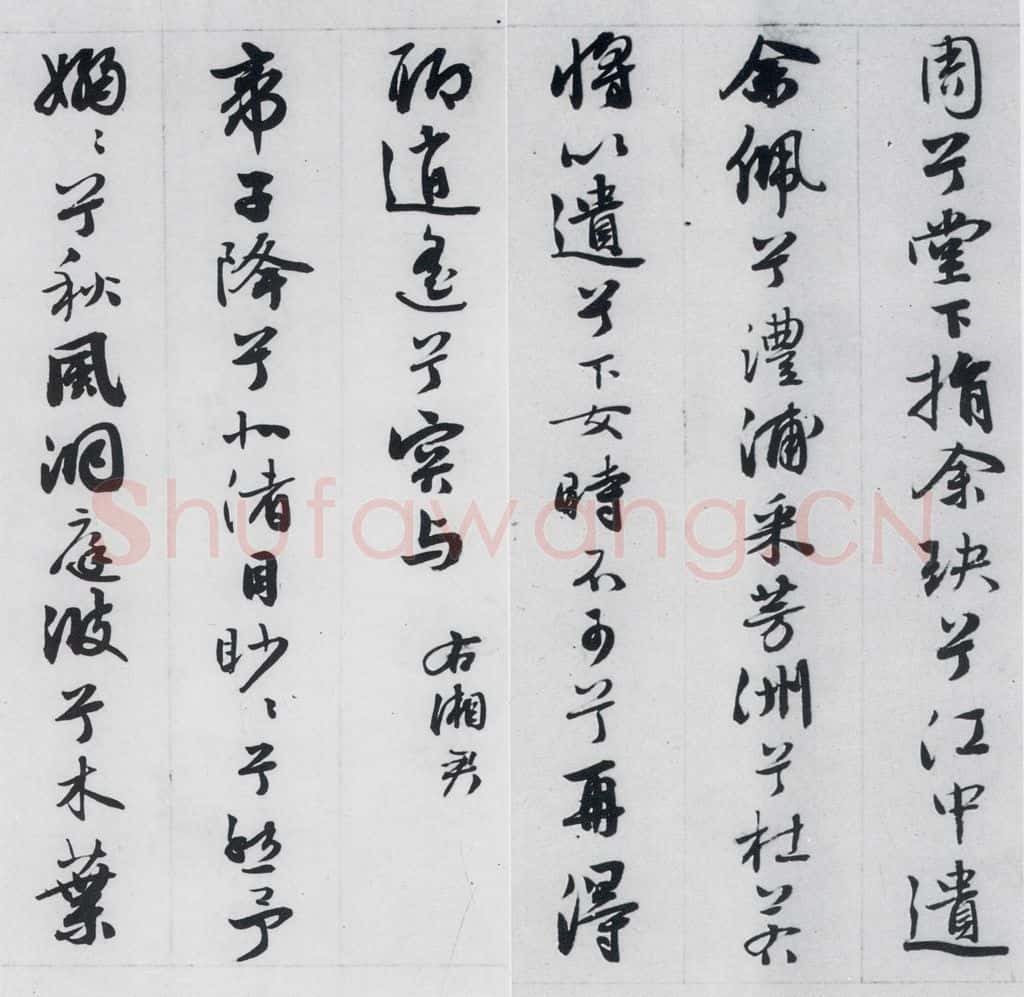 周兮堂下捐余玦兮江中遺
余佩兮澧浦采芳洲兮杜若
將以遺兮下女時不可兮再得
聊逍遙兮容与
右湘君
帝子降兮北渚目眇〻兮愁予
嫋〻兮秋風洞庭波兮木葉
Shufawang.CN